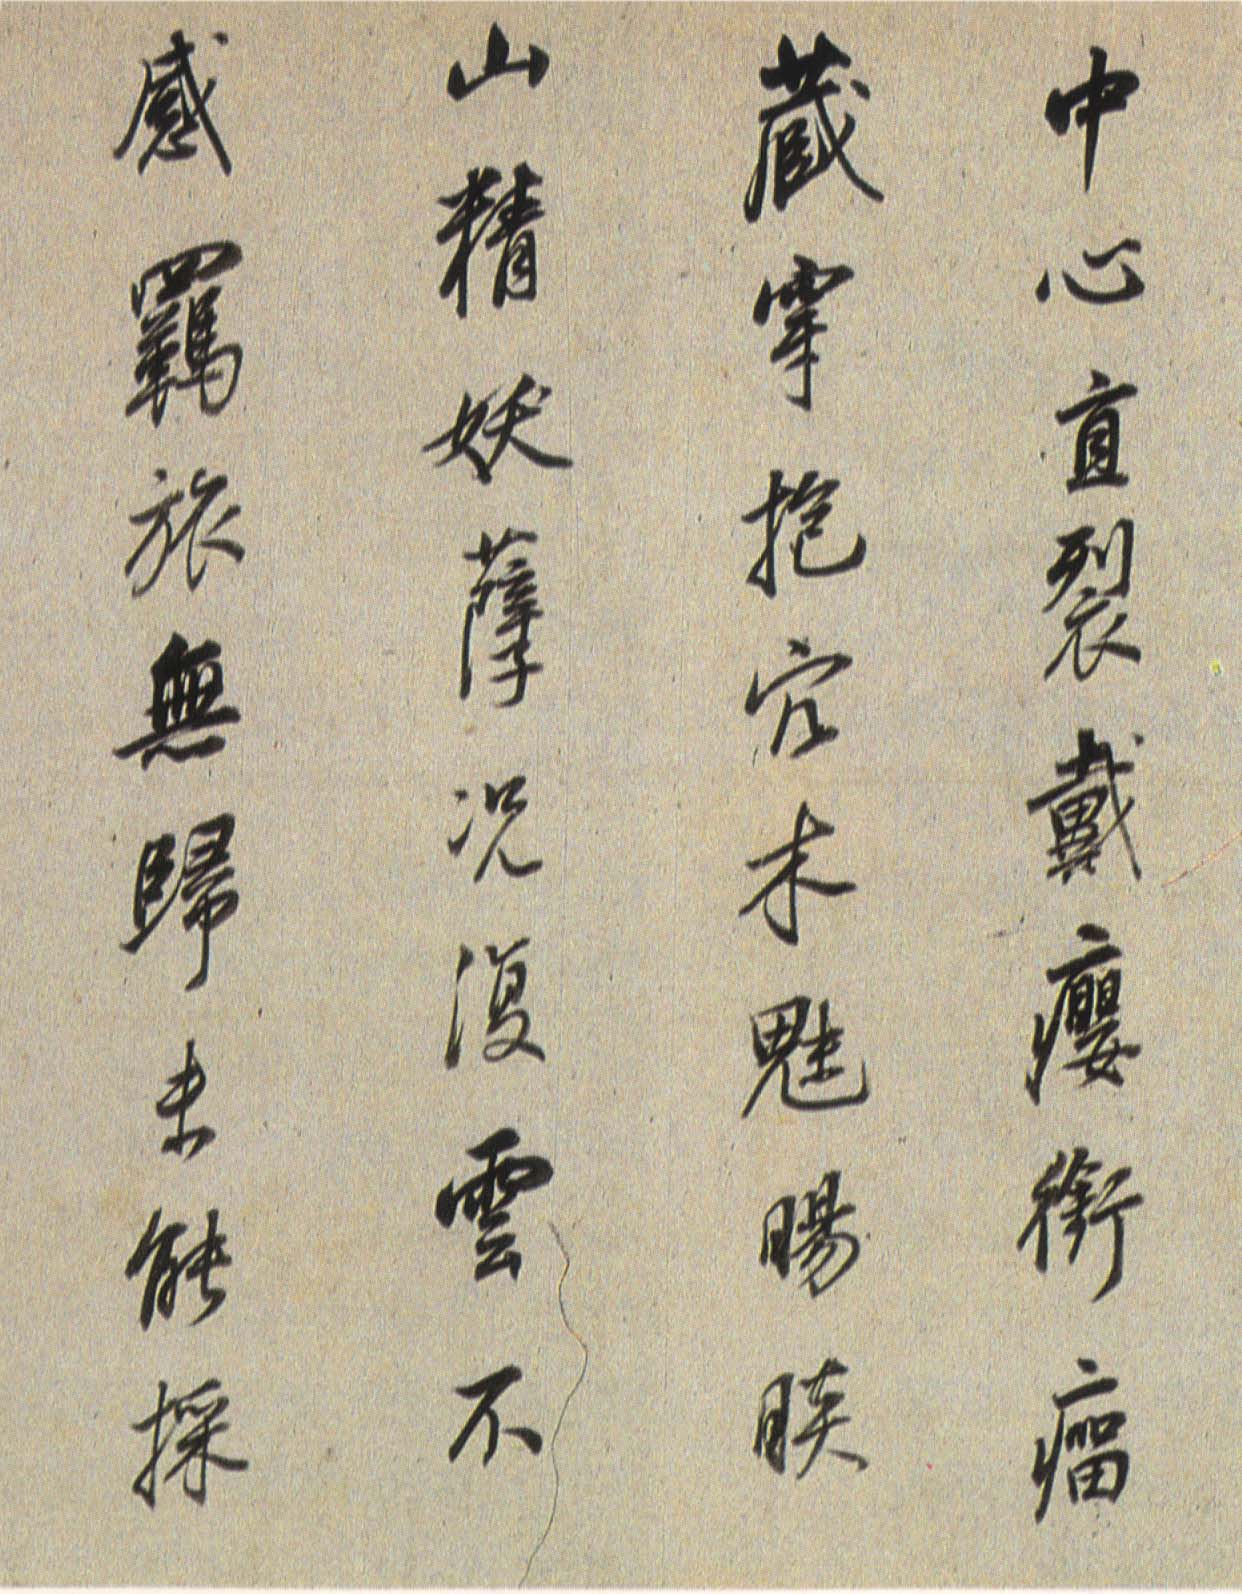 中心直裂戴癭銜瘤
藏穿抱穴木魅睗睒
山精妖孽况復雲不
感羈旅無歸未能採